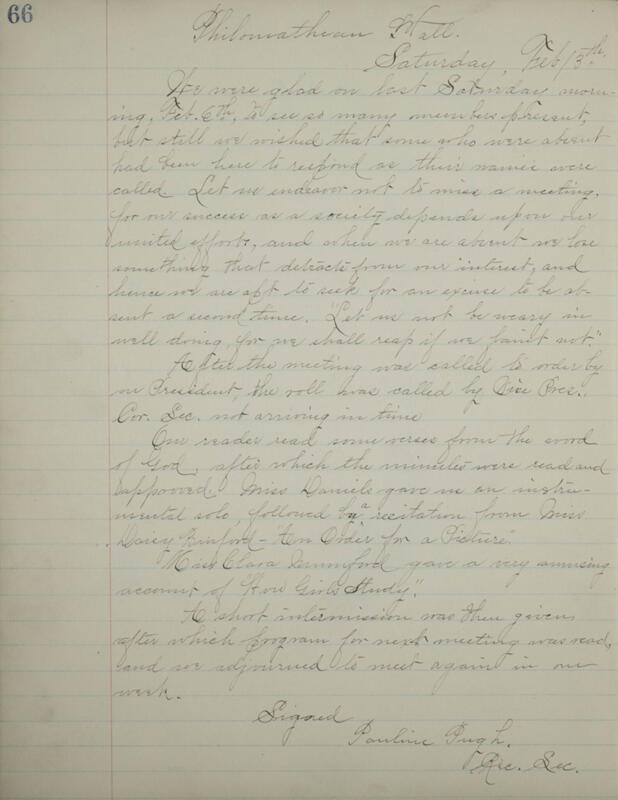 66
Philomathean Hall.
Saturday, Feb 13th.
We were glad on last Saturday morn-
ing, Feb. 6th, to see so many members present,
but still we wished that some who were absent
had been here to respond as their names were
called. Let us endeavor not to miss a meeting,
for our success as a society depends upon our
united efforts, and when we are absent we lose
something that detracts from our interest, and
hence we are apt to seek for an excuse to be ab-
sent a second time. "Let us not be weary in
well doing, for we shall reap if we faint not."
After the meeting was called to order by
our President, the roll was called by Vice Pres.,
Cor. Sec. not arriving in time
Our reader read some verses from the word
of God, after which the minutes were read and
approved. Miss Daniels gave us an instru-
mental solo, followed by a recitation from Miss
Daisy - "An Order for a Picture."
Miss Clara Mumford gave a very amusing
account of "How Girls Study".
A short intermission was then given,
after which program for next meeting was read,
and we adjourned to meet again in one
week.
Signed
Pauline Pugh.
Rec. Sec.